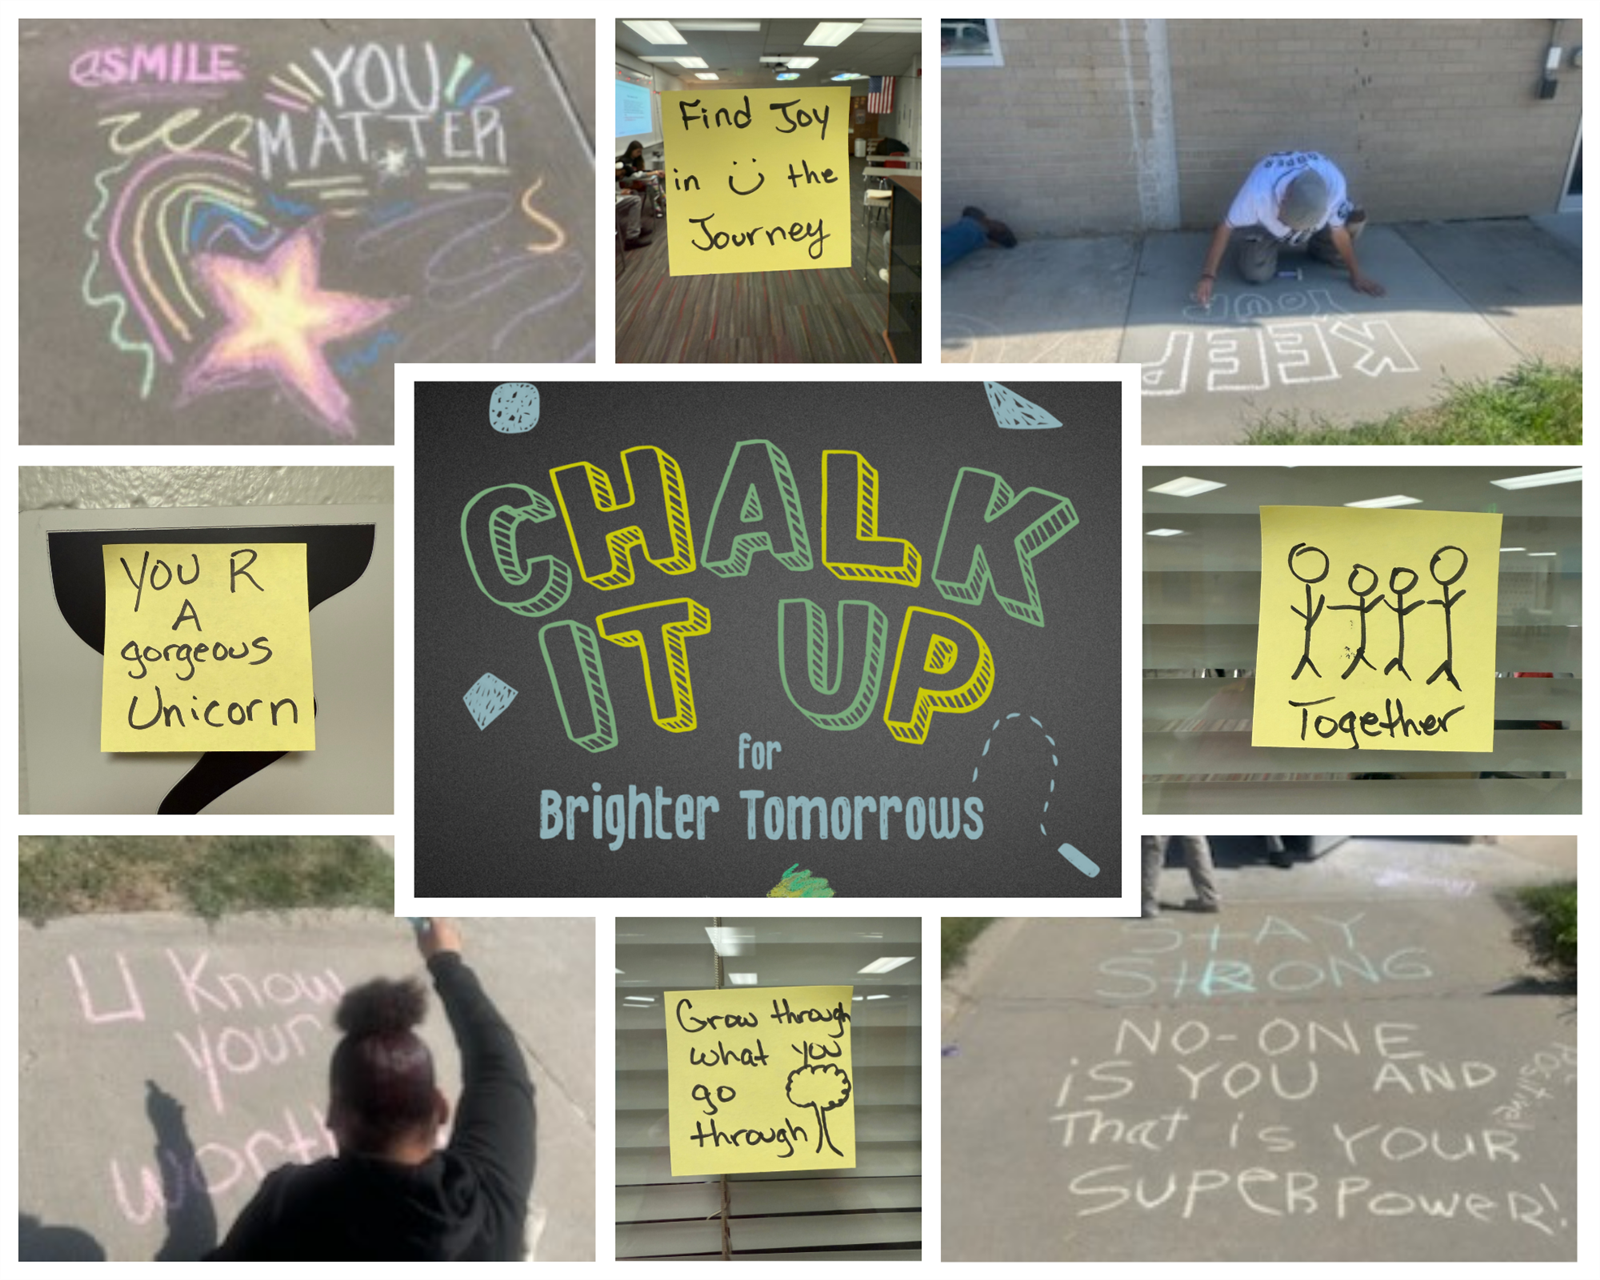 @SMILE
YOU
MATTER
Find Joy
in the
Journey
KEEP
YOUR
YOU R
A
gorgeous
Unicorn
CHALK
IT UP
for
Brighter Tomorrows
Together
U Know
your
worth
Grow through
what you
go
through
STAY
STRONG
NO-ONE
iS YOU AND
That is YOUR
SUPERPOWER!